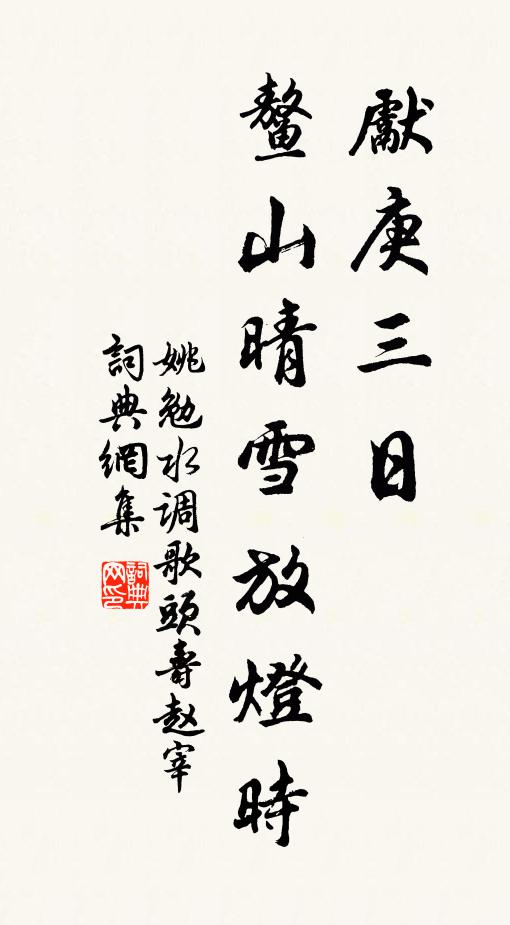 獻庚三日
鳌山晴雪放燈時
姚勉水调歌頭壽赵宰
詞典網集
詞典
网印